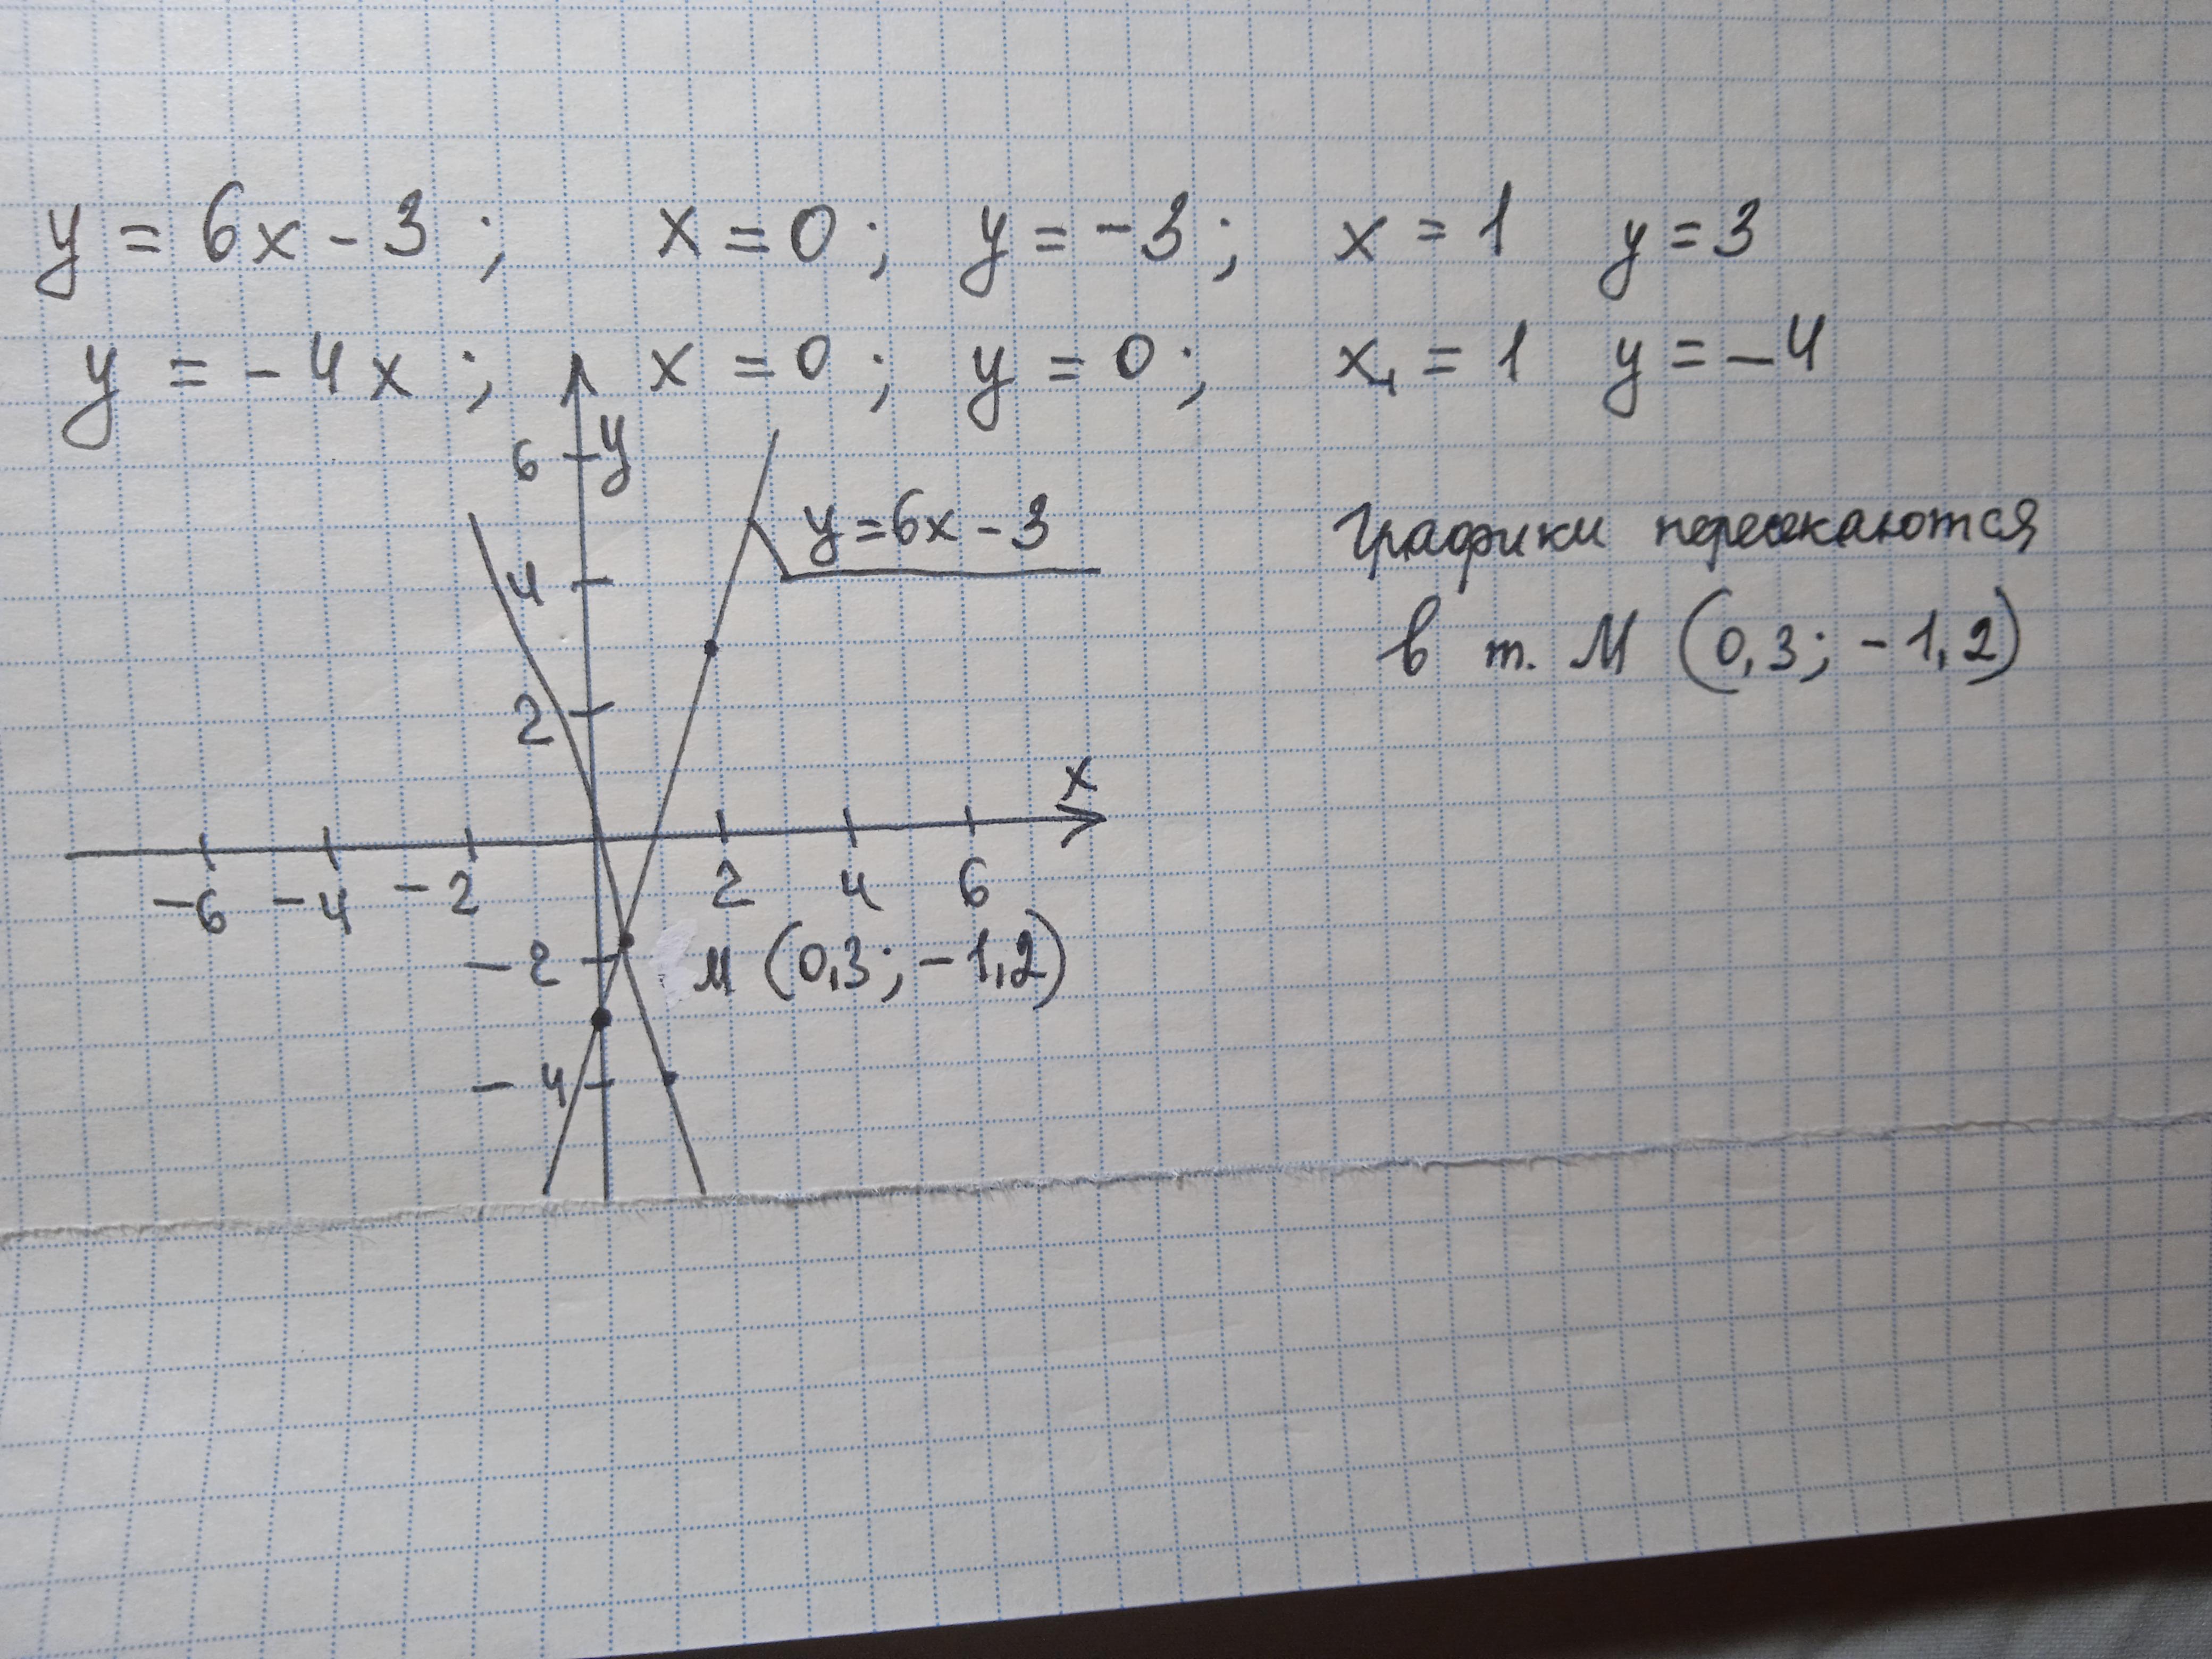 y = 6x - 3; x = 0; y = -3; x = 1 y = 3
y = -4x; x = 0; y = 0; x₁ = 1 y = -4
y
6
y = 6x - 3
графики пересекаются
4
в т. М (0,3; -1,2)
2
x
-6 -4 -2 2 4 6
-2 М (0,3; -1,2)
-4